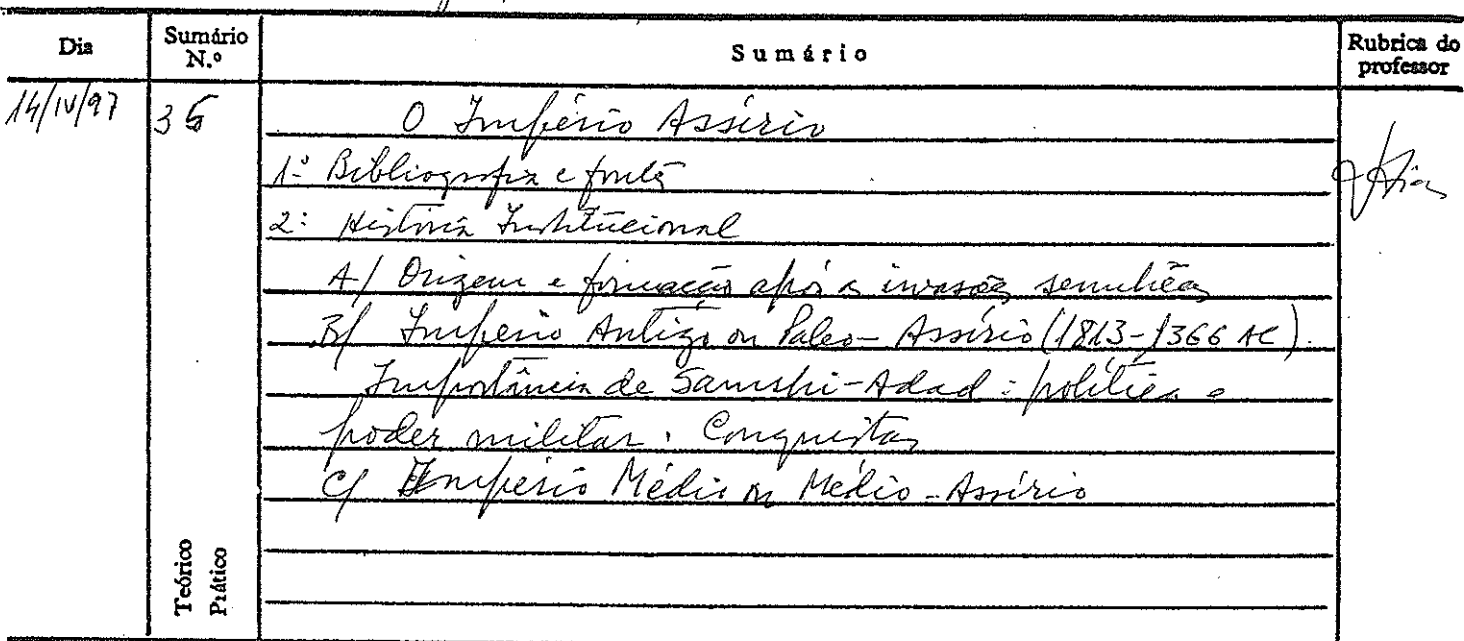 Dia Sumário N.º Sumário Rubrica do professor
14/IV/97 35 O Império Assírio
1º Bibliografia e fontes
2: História Institucional
A/ Origem e formação após as invasões semitas
B/ Império Antigo ou Paleo-Assírio (1813-1366 AC).
Importância de Samshi-Adad: política e
poder militar. Conquistas
C/ Império Médio ou Médio-Assírio
Teórico
Prático